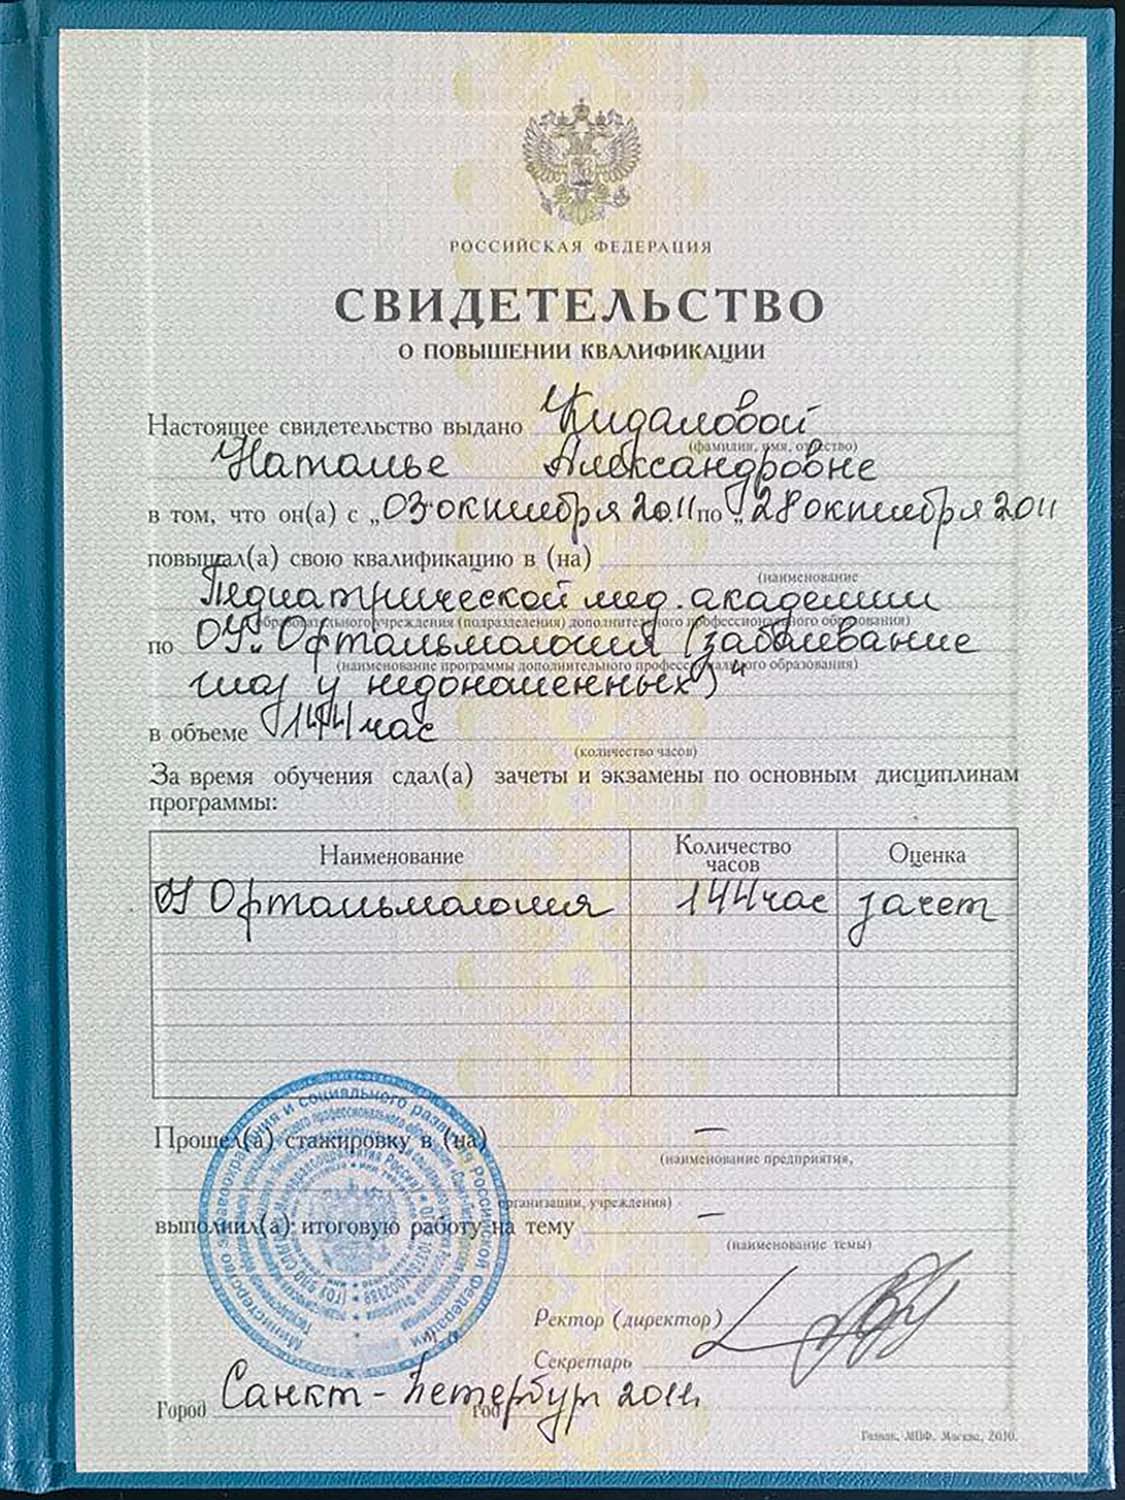 РОССИЙСКАЯ ФЕДЕРАЦИЯ
СВИДЕТЕЛЬСТВО
О ПОВЫШЕНИИ КВАЛИФИКАЦИИ
Настоящее свидетельство выдано Кидаловой
(фамилия, имя, отчество)
Наталье Александровне
в том, что он(а) с „03 октября 2011 по „28 октября 2011
повышал(а) свою квалификацию в (на)
(наименование
Педиатрической мед. академии
образовательного учреждения (подразделения) дополнительного профессионального образования)
по ОУ „Офтальмология (заболевание
(наименование программы дополнительного профессионального образования)
глаз у недоношенных)"
в объеме 144 час
(количество часов)
За время обучения сдал(а) зачеты и экзамены по основным дисциплинам
программы:
Наименование Количество часов Оценка
ОУ Офтальмология 144 час зачет
Прошел(а) стажировку в (на) —
(наименование предприятия,
организации, учреждения)
выполнил(а) итоговую работу на тему —
(наименование темы)
Ректор (директор)
Секретарь
Город Санкт-Петербург год 2011
Гознак, МПФ, Москва, 2010.
Министерство здравоохранения и социального развития Российской Федерации